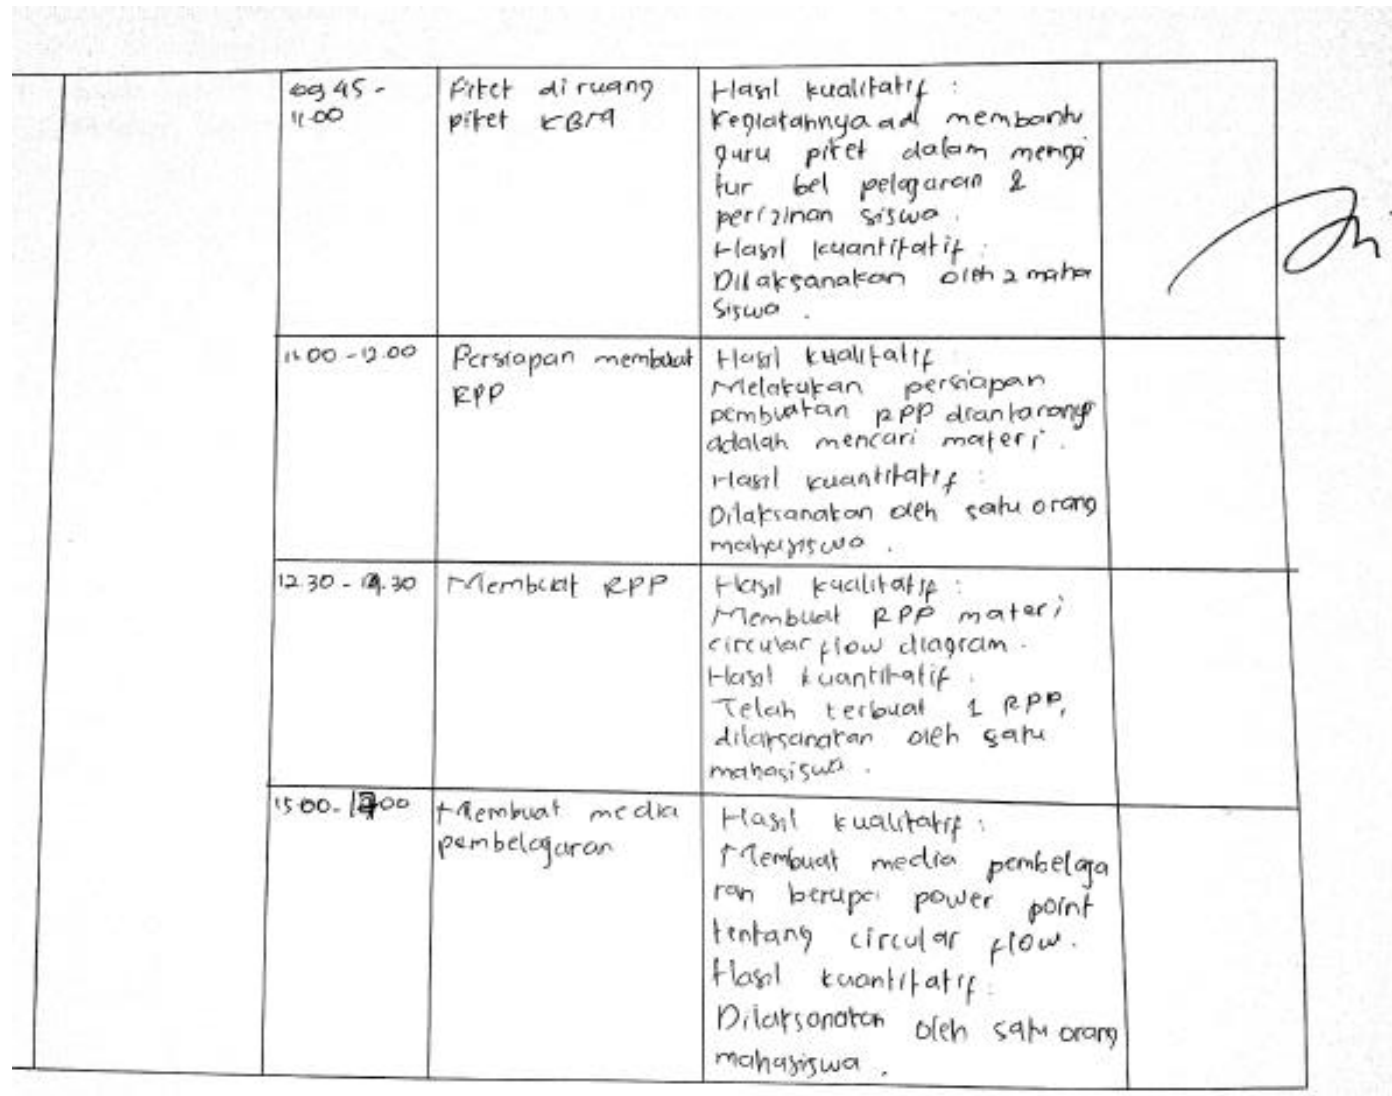 09 45 -
11.00
Piket di ruang
piket KBM
Hasil kualitatif :
Kegiatannya adl membantu
guru piket dalam menga
tur bel pelajaran &
perizinan siswa.
Hasil kuantitatif :
Dilaksanakan oleh 2 maha
siswa .
11.00 - 12.00
Persiapan membuat
RPP
Hasil kualitatif
Melakukan persiapan
pembuatan RPP diantaranya
adalah mencari materi .
Hasil kuantitatif :
Dilaksanakan oleh satu orang
mahasiswa .
12.30 -
Membuat RPP
Hasil kualitatif :
Membuat RPP materi
circular flow diagram .
Hasil kuantitatif :
Telah terbuat 1 RPP,
dilaksanakan oleh satu
mahasiswa .
15.00 -
Membuat media
pembelajaran
Hasil kualitatif :
Membuat media pembelaja
ran berupa power point
tentang circular flow.
Hasil kuantitatif :
Dilaksanakan oleh satu orang
mahasiswa .